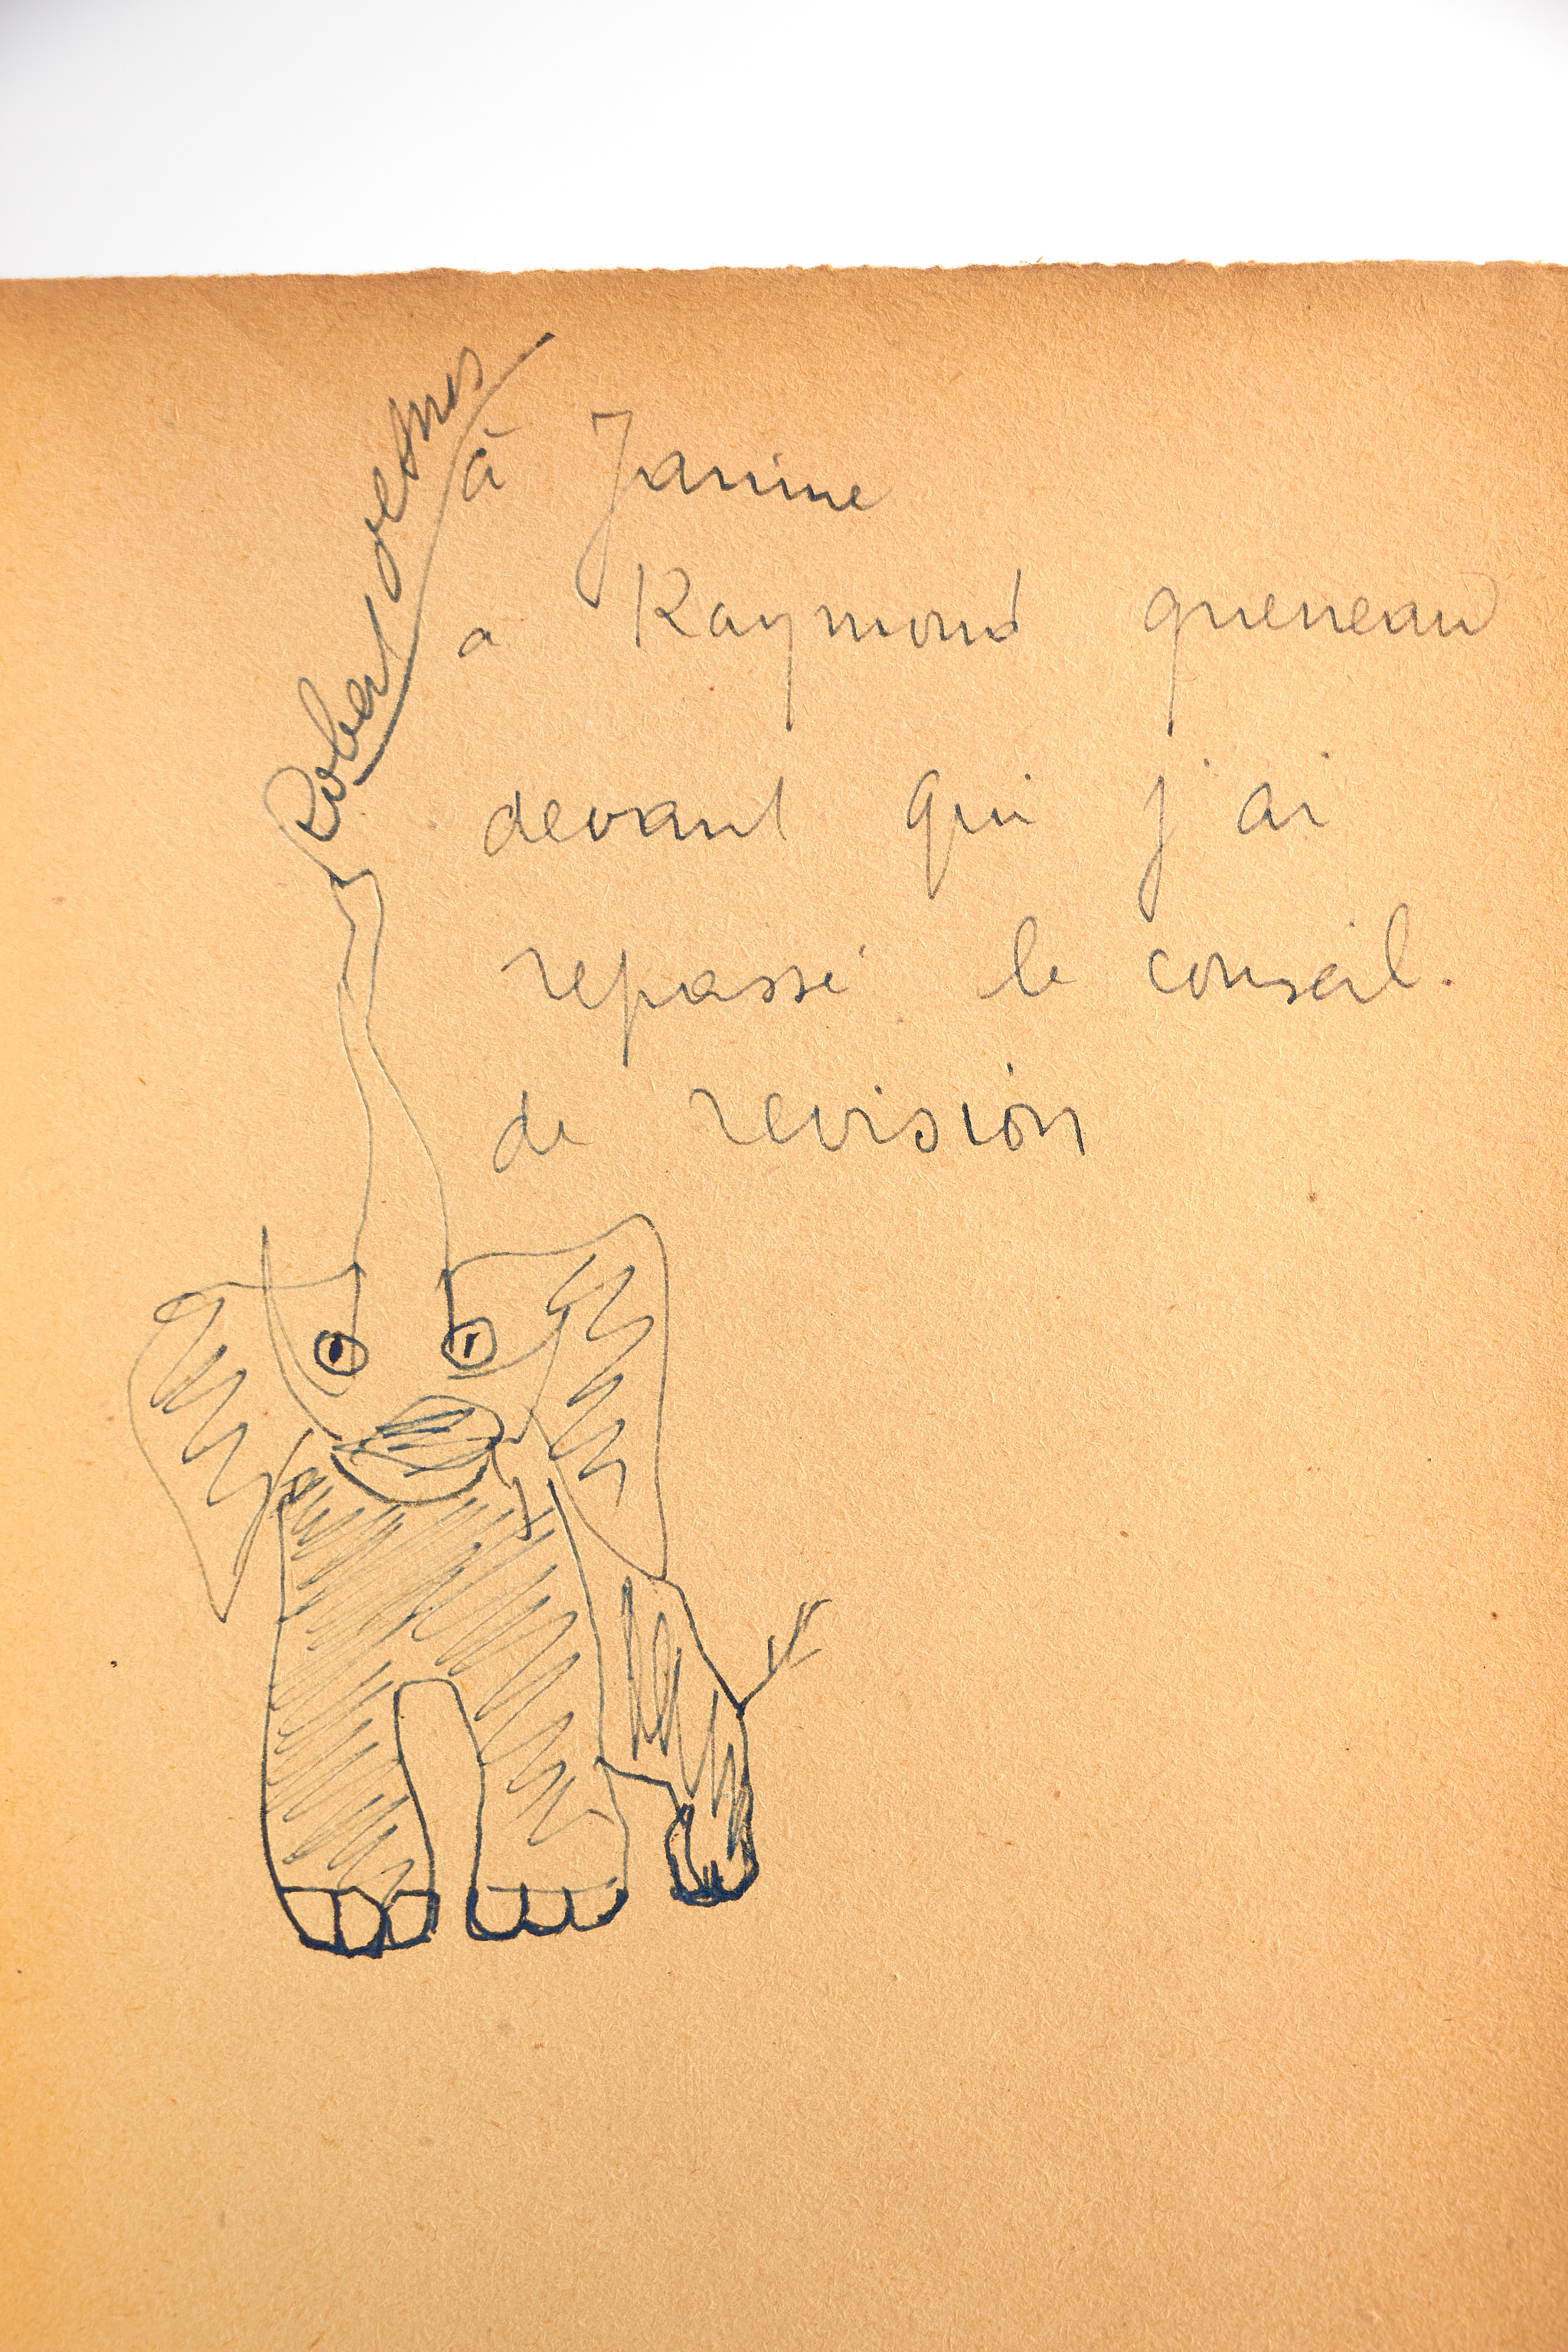 Robert desnos
à Janine
a Raymond queneau
devant qui j'ai
repassé le conseil.
de revision